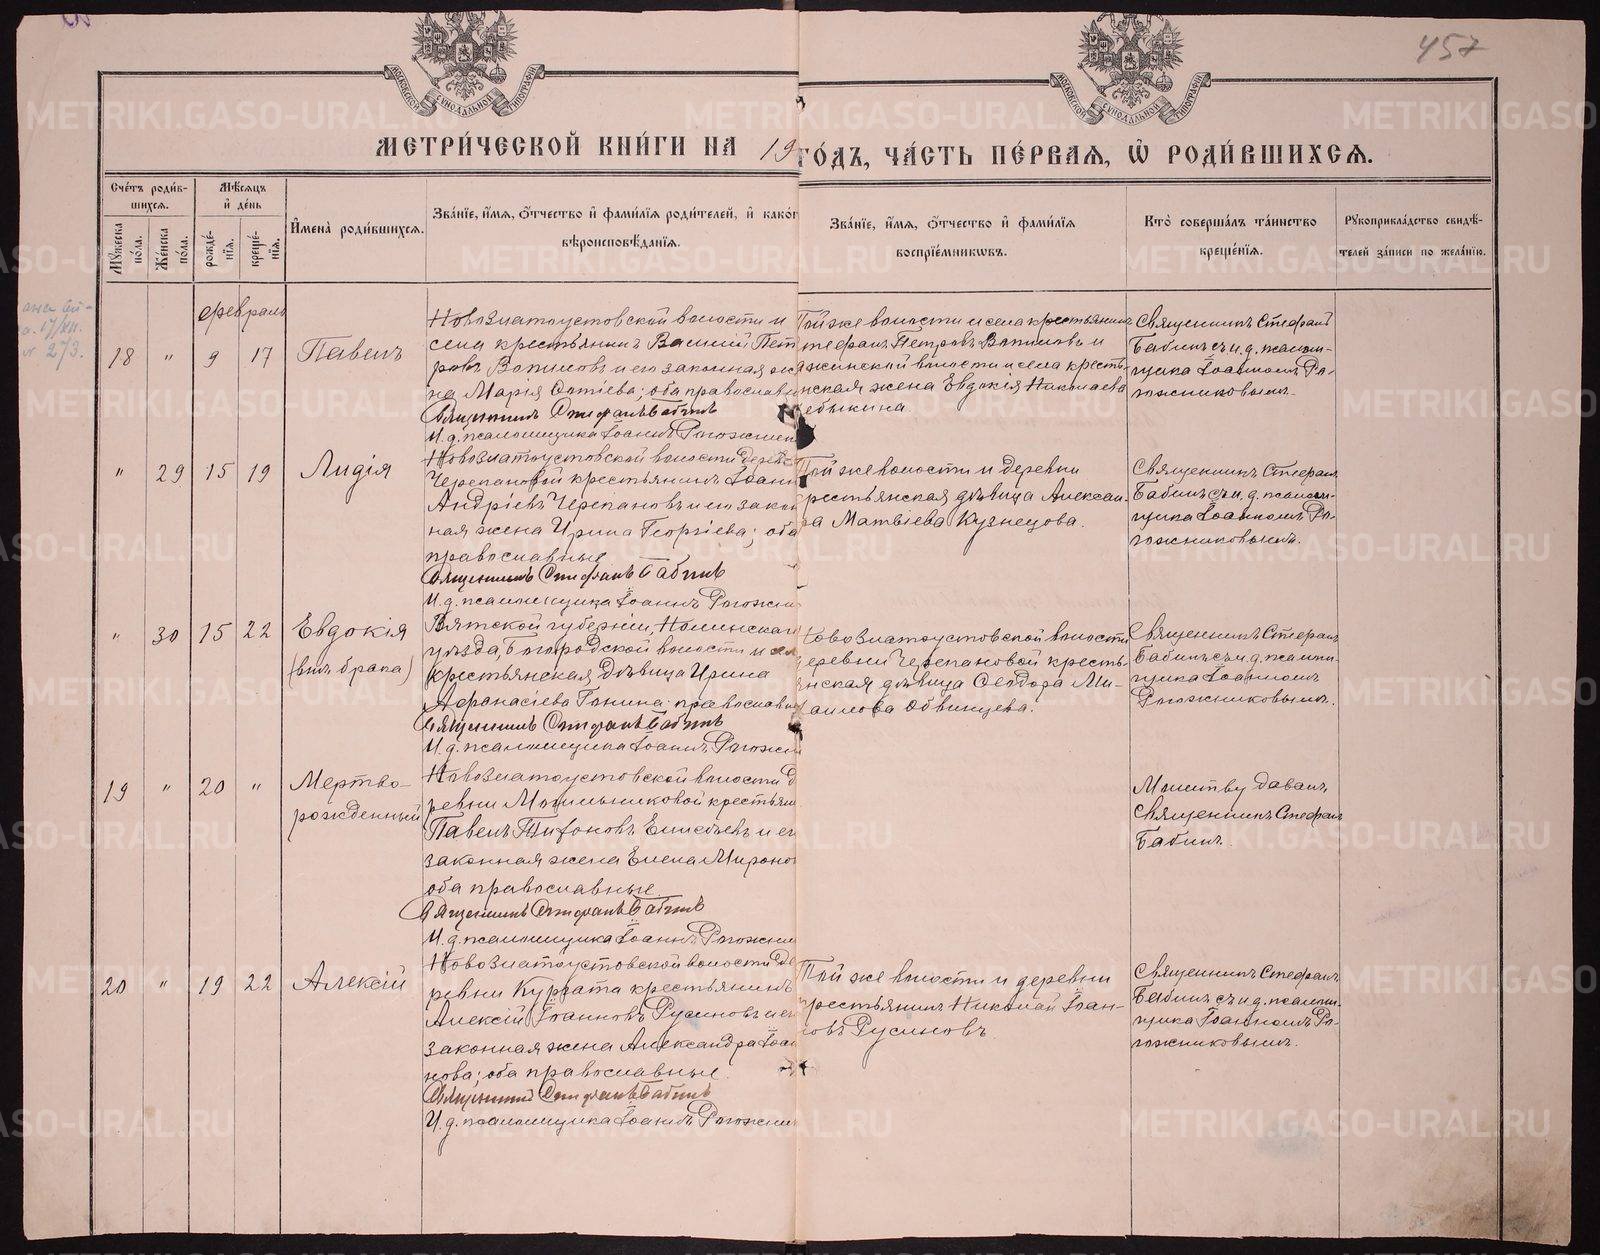 457
МОСКОВСКОЙ СѴНОДАЛЬНОЙ ТИПОГРАФІИ
МОСКОВСКОЙ СѴНОДАЛЬНОЙ ТИПОГРАФІИ
МЕТРИ́ЧЕСКОЙ КНИ́ГИ НА 19 ГО́ДЪ, ЧА́СТЬ ПЕ́РВАЯ, Ѽ РОДИ́ВШИХСЯ.
Сче́тъ роди́в-
шихся.
Му́жеска по́ла.
Же́нска по́ла.
Мѣ́сяцъ
и҆ де́нь
рожде́-
нія.
креще́-
нія.
И҆мена̀ роди́вшихся.
Зва́ніе, и҆́мя, ѻ҆́тчество и҆ фами́лія роди́телей, и҆ како́г
вѣроисповѣ́данія.
Зва́ніе, и҆́мя, ѻ҆́тчество и҆ фами́лія
воспріе́мниковъ.
Кто̀ соверша́лъ та́инство
креще́нія.
Рукоприкла́дство свидѣ́-
телей за́писи по жела́нію.
февраль
18 " 9 17 Павелъ
Новозлатоустовской волости и
села крестьянинъ Василій Пет
ровъ и его законная же
на Марія ; оба православн
Священникъ Стефанъ Бабинъ
И. д. псаломщика Іоаннъ Рогожник
Той же волости и села крестьянинъ
Стефанъ Петровъ и
волости и села кресть-
янская жена Евдокія Николаева
Священникъ Стефанъ
Бабинъ съ и. д. псалом-
щика Іоанномъ Ро-
гожниковымъ.
" 29 15 19 Лидія
Новозлатоустовской волости дерев
Черепановой крестьянинъ Іоанн
Андріевъ Черепановъ и его закон
ная жена Ирина Георгіева; оба
православные
Священникъ Стефанъ Бабинъ
И. д. псаломщика Іоаннъ Рогожни
Той же волости и деревни
крестьянская дѣвица Алексан-
ра Матвіева Кузнецова.
Священникъ Стефанъ
Бабинъ съ и. д. псалом-
щика Іоанномъ Ро-
гожниковымъ.
" 30 15 22 Евдокія
(внѣ брака)
Вятской губерніи, Нолинскаго
уѣзда, Богородской волости и села
крестьянская дѣвица Ирина
Афанасіева Гонина; православн
Священникъ Стефанъ Бабинъ
И. д. псаломщика Іоаннъ Рогожни
Новозлатоустовской волости
деревни Черепановой кресть-
янская дѣвица Ѳеодора Ми-
хаилова Обвинцева.
Священникъ Стефанъ
Бабинъ съ и. д. псалом-
щика Іоанномъ
Рогожниковымъ.
19 " 20 " Мертво-
рожденный
Новозлатоустовской волости д
ревни Могильниковой крестьян
Павелъ Тихоновъ Елисѣевъ и ег
законная жена Елена Миронов
оба православные.
Священникъ Стефанъ Бабинъ
И. д. псаломщика Іоаннъ Рогожни
Молитву давалъ
Священникъ Стефанъ
Бабинъ.
20 " 19 22 Алексій
Новозлатоустовской волости де
ревни Кургата крестьянинъ
Алексій Іоанновъ Русиновъ и ег
законная жена Александра Іоан
нова; оба православные.
Священникъ Стефанъ Бабинъ
И. д. псаломщика Іоаннъ Рогожни
Той же волости и деревни
крестьянинъ Николай Іоан-
новъ Русиновъ
Священникъ Стефанъ
Бабинъ съ и. д. псалом-
щика Іоанномъ Ро-
гожниковымъ.
METRIKI.GASO-URAL.RU